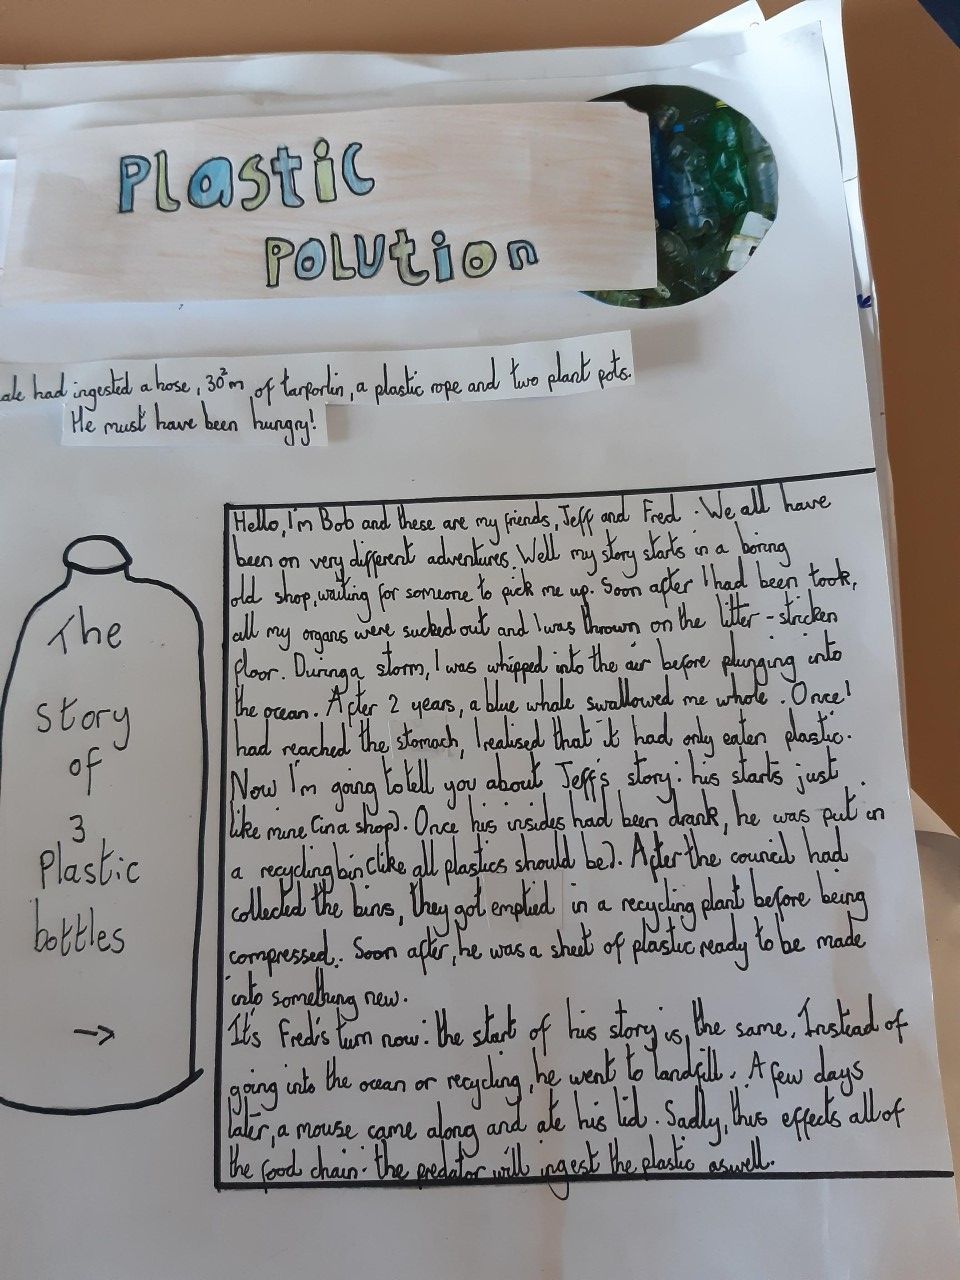 Plastic
POLUtion
ale had ingested a hose, 30²m of tarporlin, a plastic rope and two plant pots.
He must have been hungry!
The
story
of
3
Plastic
bottles
→
Hello, I'm Bob and these are my friends, Jeff and Fred. We all have
been on very different adventures. Well my story starts in a boring
old shop, waiting for someone to pick me up. Soon after I had been took,
all my organs were sucked out and I was thrown on the litter-stricken
floor. During a storm, I was whipped into the air before plunging into
the ocean. After 2 years, a blue whale swallowed me whole. Once I
had reached the stomach, I realised that it had only eaten plastic.
Now I'm going to tell you about Jeff's story: his starts just
like mine (in a shop). Once his insides had been drank, he was put in
a recycling bin (like all plastics should be). After the council had
collected the bins, they got emptied in a recycling plant before being
compressed. Soon after, he was a sheet of plastic ready to be made
into something new.
It's Fred's turn now: the start of his story is, the same. Instead of
going into the ocean or recycling, he went to landfill. A few days
later, a mouse came along and ate his lid. Sadly, this effects all of
the food chain: the predator will ingest the plastic aswell.